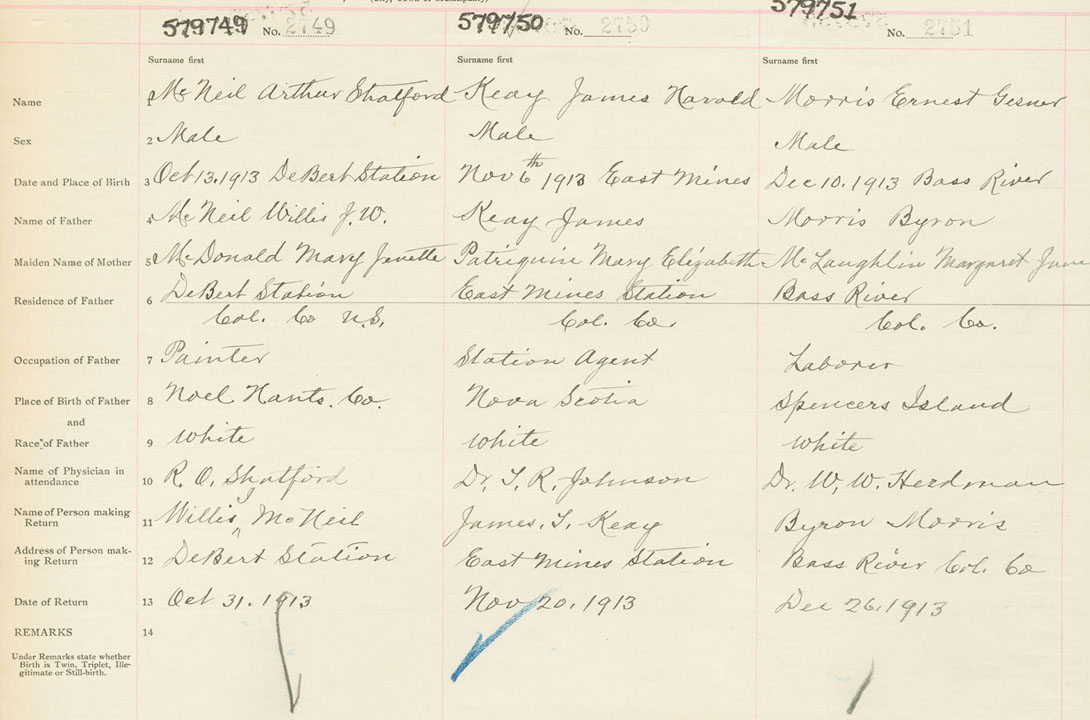 579749 No. 2749 579750 No. 2750 579751 No. 2751
Surname first Surname first Surname first
Name 1 McNeil Arthur Shatford Keay James Harold Morris Ernest Gesner
Sex 2 Male Male Male
Date and Place of Birth 3 Oct 13. 1913 DeBert Station Nov 6th 1913 East Mines Dec 10. 1913 Bass River
Name of Father 4 McNeil Willis J. W. Keay James Morris Byron
Maiden Name of Mother 5 McDonald Mary Janette Patriquin Mary Elizabeth McLaughlin Margaret Jane
Residence of Father 6 DeBert Station East Mines Station Bass River
Col. Co N.S. Col. Co. Col. Co.
Occupation of Father 7 Painter Station Agent Laborer
Place of Birth of Father 8 Noel Hants. Co. Nova Scotia Spencers Island
and
Race of Father 9 White White White
Name of Physician in
attendance 10 R. O. Shatford Dr. T. R. Johnson Dr. W. W. Herdman
Name of Person making
Return 11 Willis J McNeil James. T. Keay Byron Morris
Address of Person mak-
ing Return 12 DeBert Station East Mines Station Bass River Col. Co
Date of Return 13 Oct 31. 1913 Nov 20. 1913 Dec 26. 1913
REMARKS 14
Under Remarks state whether
Birth is Twin, Triplet, Ille-
gitimate or Still-birth.